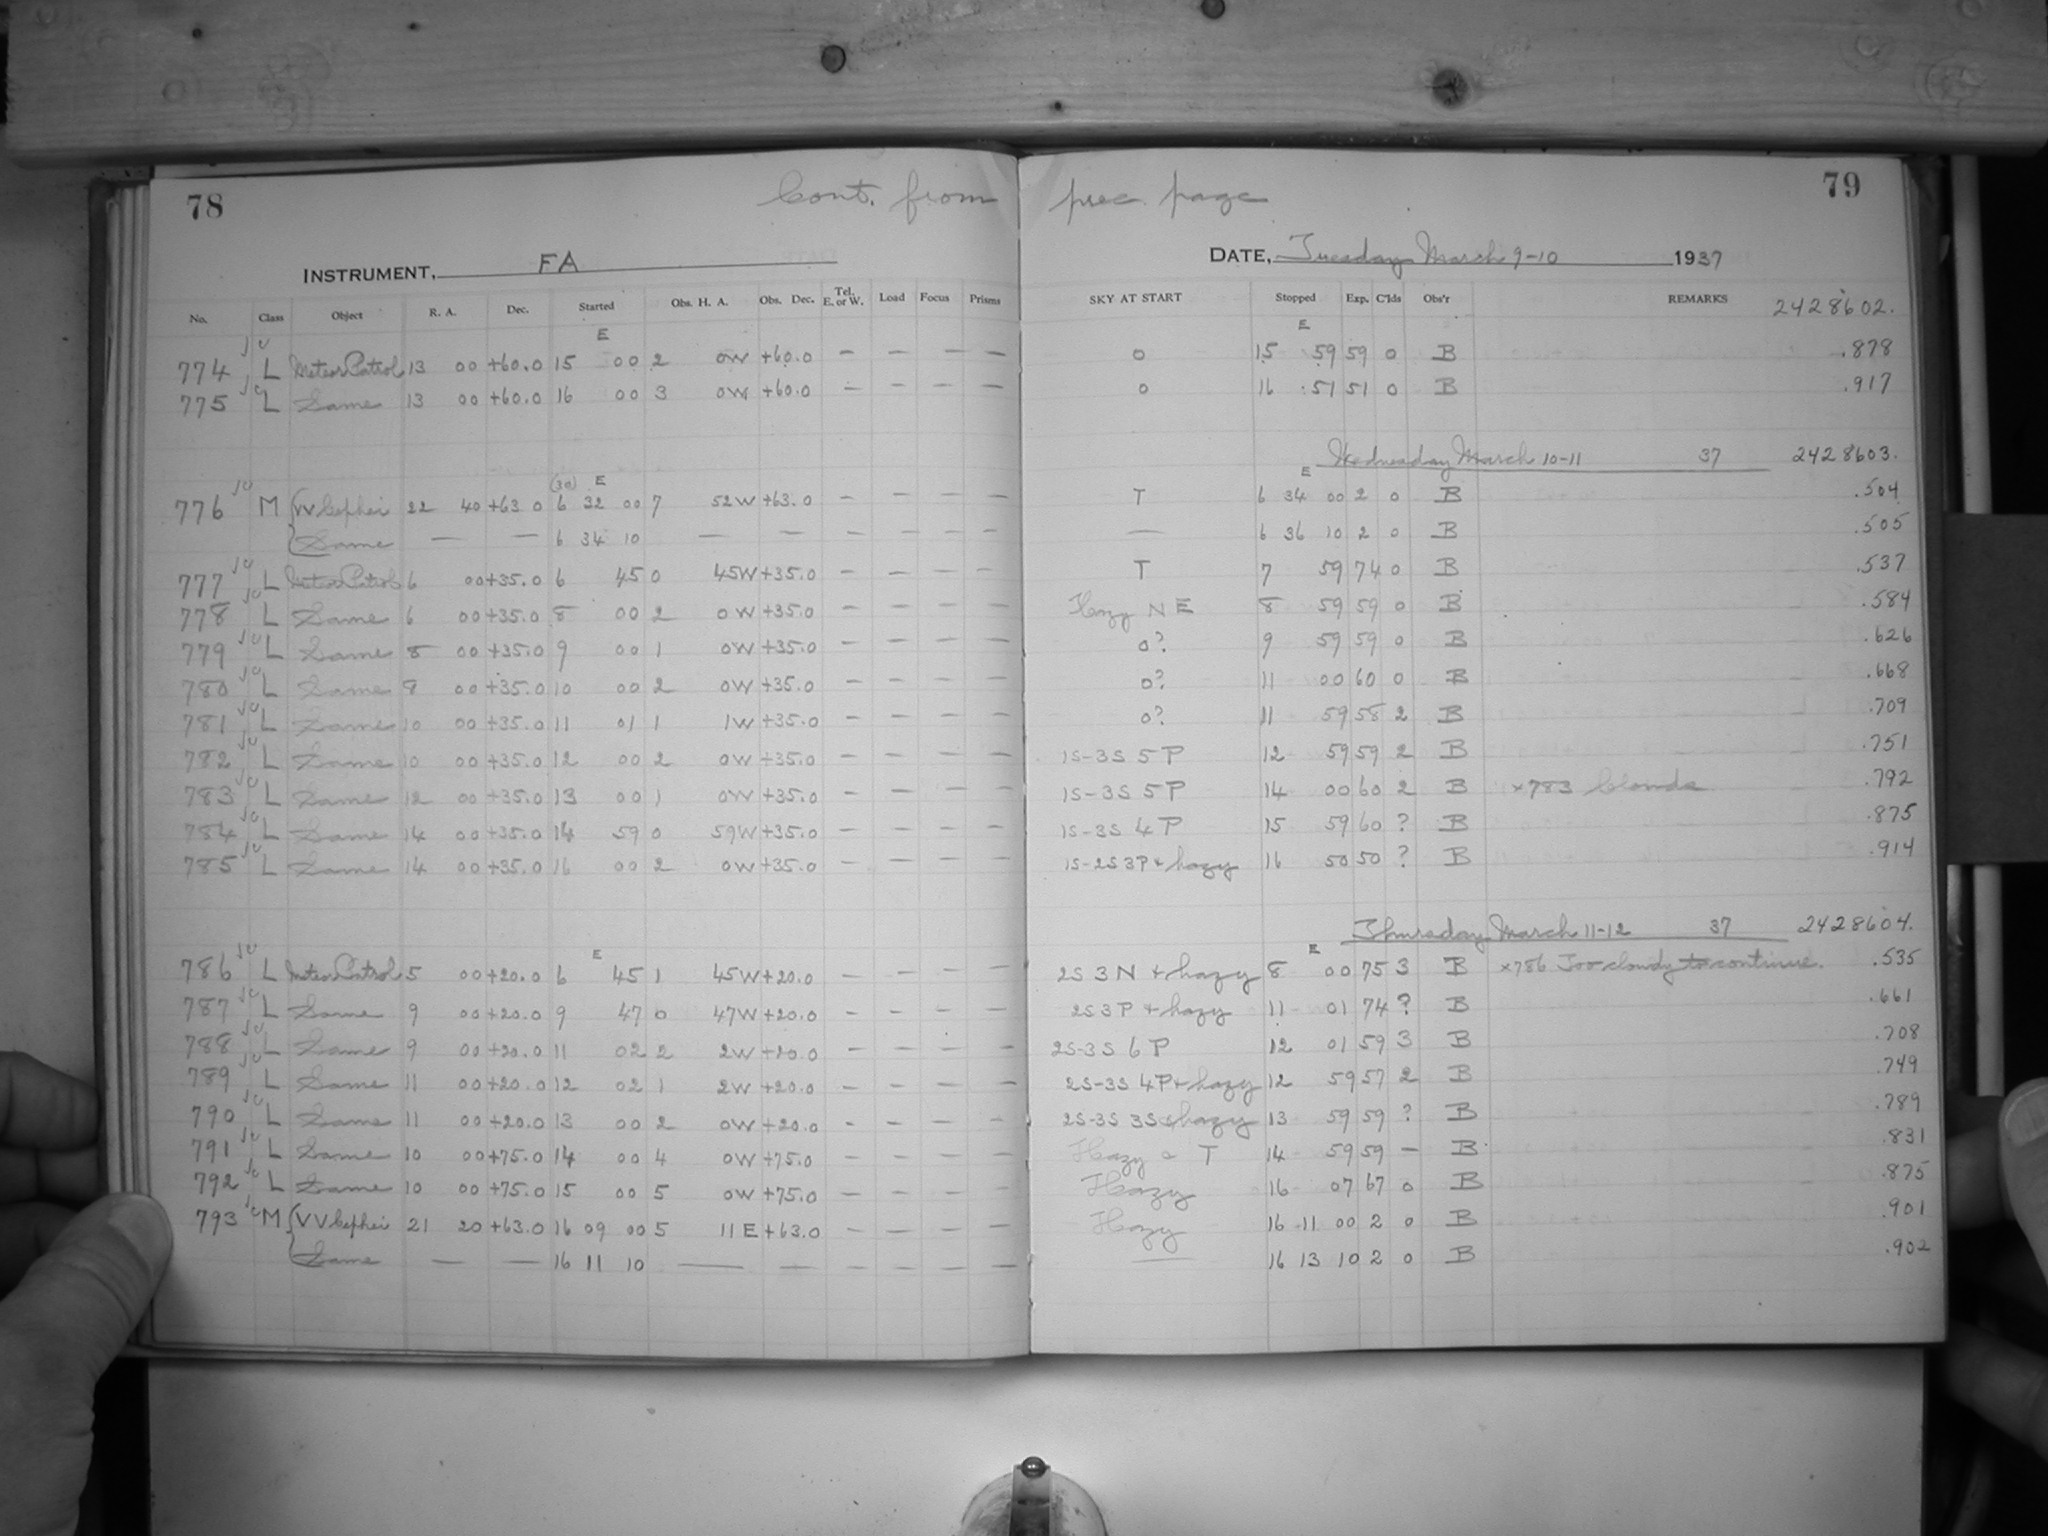 78 Cont. from prec. page 79
INSTRUMENT, FA DATE, Tuesday March 9-10 1937
No. Class Object R. A. Dec. Started Obs. H. A. Obs. Dec. Tel. E. or W. Load Focus Prisms SKY AT START Stopped Exp. C'lds Obs'r REMARKS 2428602.
E E
774 L Meteor Patrol 13 00 +60.0 15 00 2 0W +60.0 — — — — 0 15 59 59 0 B .878
775 L Same 13 00 +60.0 16 00 3 0W +60.0 — — — — 0 16 51 51 0 B .917
Wednesday March 10-11 37 2428603.
(30) E E
776 M {VV Cephei 22 40 +63 0 6 32 00 7 52W +63.0 — — — — T 6 34 00 2 0 B .504
{Same — — 6 34 10 — — — — — — — 6 36 10 2 0 B .505
777 L Meteor Patrol 6 00 +35.0 6 45 0 45W +35.0 — — — — T 7 59 74 0 B .537
778 L Same 6 00 +35.0 8 00 2 0W +35.0 — — — — Hazy N E 8 59 59 0 B .584
779 L Same 8 00 +35.0 9 00 1 0W +35.0 — — — — 0? 9 59 59 0 B .626
780 L Same 8 00 +35.0 10 00 2 0W +35.0 — — — — 0? 11 00 60 0 B .668
781 L Same 10 00 +35.0 11 01 1 1W +35.0 — — — — 0? 11 59 58 2 B .709
782 L Same 10 00 +35.0 12 00 2 0W +35.0 — — — — 1S-3S 5 P 12 59 59 2 B .751
783 L Same 12 00 +35.0 13 00 1 0W +35.0 — — — — 1S-3S 5 P 14 00 60 2 B x783 Clouds .792
784 L Same 14 00 +35.0 14 59 0 59W +35.0 — — — — 1S-3S 4 P 15 59 60 ? B .875
785 L Same 14 00 +35.0 16 00 2 0W +35.0 — — — — 1S-2S 3P + hazy 16 50 50 ? B .914
Thursday March 11-12 37 2428604.
E E
786 L Meteor Patrol 5 00 +20.0 6 45 1 45W +20.0 — — — — 2S 3 N + hazy 8 00 75 3 B x786 Too cloudy to continue. .535
787 L Same 9 00 +20.0 9 47 0 47W +20.0 — — — — 2S 3 P + hazy 11 01 74 ? B .661
788 L Same 9 00 +20.0 11 02 2 2W +20.0 — — — — 2S-3S 6 P 12 01 59 3 B .708
789 L Same 11 00 +20.0 12 02 1 2W +20.0 — — — — 2S-3S 4P + hazy 12 59 57 2 B .749
790 L Same 11 00 +20.0 13 00 2 0W +20.0 — — — — 2S-3S 3S + hazy 13 59 59 ? B .789
791 L Same 10 00 +75.0 14 00 4 0W +75.0 — — — — Hazy T 14 59 59 — B .831
792 L Same 10 00 +75.0 15 00 5 0W +75.0 — — — — Hazy 16 07 67 0 B .875
793 M {VV Cephei 21 20 +63.0 16 09 00 5 11 E +63.0 — — — — Hazy 16 11 00 2 0 B .901
{Same — — 16 11 10 — — — — — — — 16 13 10 2 0 B .902